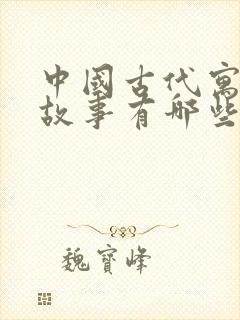 中國古代寓
故事有哪些
魏寶峰